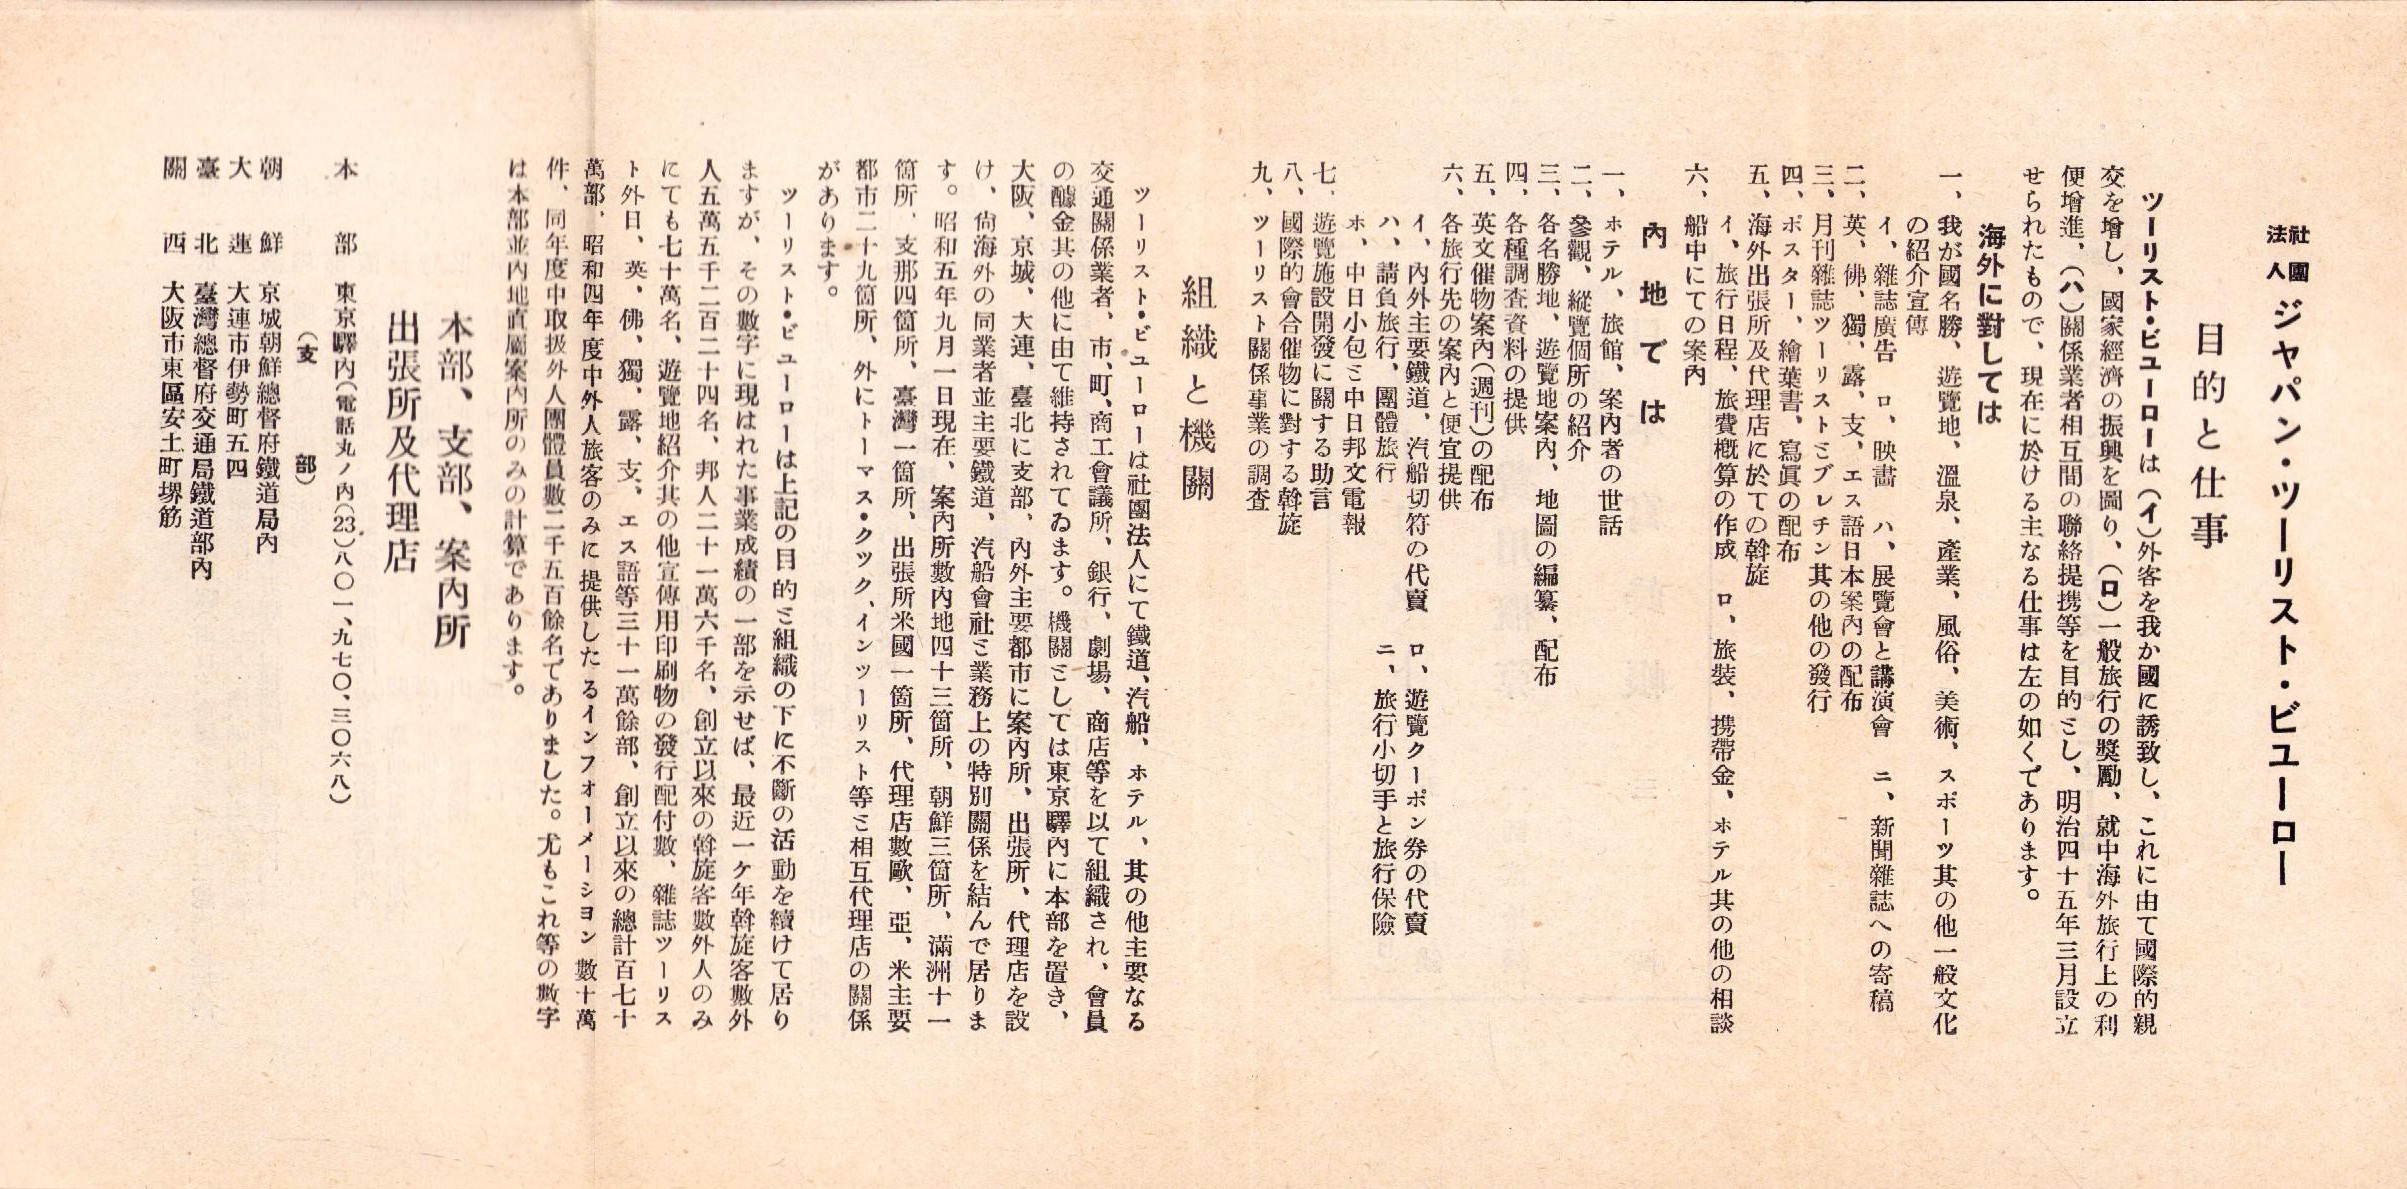 社團法人 ジャパン・ツーリスト・ビューロー
目的と仕事
ツーリスト・ビューローは（イ）外客を我か國に誘致し、これに由て國際的親
交を增し、國家經濟の振興を圖り、（ロ）一般旅行の獎勵、就中海外旅行上の利
便增進、（ハ）關係業者相互間の聯絡提携等を目的ミし、明治四十五年三月設立
せられたもので、現在に於ける主なる仕事は左の如くであります。
海外に對しては
一、我が國名勝、遊覽地、溫泉、產業、風俗、美術、スポーツ其の他一般文化
の紹介宣傳
イ、雜誌廣告　ロ、映畫　ハ、展覽會と講演會　ニ、新聞雜誌への寄稿
二、英、佛、獨、露、支、エス語日本案內の配布
三、月刊雜誌ツーリストミブレチン其の他の發行
四、ポスター、繪葉書、寫眞の配布
五、海外出張所及代理店に於ての斡旋
イ、旅行日程、旅費槪算の作成　ロ、旅裝、携帶金、ホテル其の他の相談
六、船中にての案內
內地では
一、ホテル、旅館、案內者の世話
二、參觀、縱覽個所の紹介
三、各名勝地、遊覽地案內、地圖の編纂、配布
四、各種調査資料の提供
五、英文催物案內（週刊）の配布
六、各旅行先の案內と便宜提供
イ、內外主要鐵道、汽船切符の代賣　ロ、遊覽クーポン券の代賣
ハ、請負旅行、團體旅行　ニ、旅行小切手と旅行保險
ホ、中日小包ミ中日邦文電報
七、遊覽施設開發に關する助言
八、國際的會合催物に對する斡旋
九、ツーリスト關係事業の調査
組織と機關
ツーリスト・ビューローは社團法人にて鐵道、汽船、ホテル、其の他主要なる
交通關係業者、市、町、商工會議所、銀行、劇場、商店等を以て組織され、會員
の醵金其の他に由て維持されてゐます。機關ミしては東京驛內に本部を置き、
大阪、京城、大連、臺北に支部、內外主要都市に案內所、出張所、代理店を設
け、尙海外の同業者並主要鐵道、汽船會社ミ業務上の特別關係を結んで居りま
す。昭和五年九月一日現在、案內所數內地四十三箇所、朝鮮三箇所、滿洲十一
箇所、支那四箇所、臺灣一箇所、出張所米國一箇所、代理店數歐、亞、米主要
都市二十九箇所、外にトーマス・クック、インツーリスト等ミ相互代理店の關係
があります。
ツーリスト・ビューローは上記の目的ミ組織の下に不斷の活動を續けて居り
ますが、その數字に現はれた事業成績の一部を示せば、最近一ケ年斡旋客數外
人五萬五千二百二十四名、邦人二十一萬六千名、創立以來の斡旋客數外人のみ
にても七十萬名、遊覽地紹介其の他宣傳用印刷物の發行配付數、雜誌ツーリス
ト外日、英、佛、獨、露、支、エス語等三十一萬餘部、創立以來の總計百七十
萬部、昭和四年度中外人旅客のみに提供したるインフォーメーション數十萬
件、同年度中取扱外人團體員數二千五百餘名でありました。尤もこれ等の數字
は本部並內地直屬案內所のみの計算であります。
本部、支部、案內所
出張所及代理店
本部　東京驛內（電話丸ノ內（23）八〇一、九七〇、三〇六八）
（支部）
朝鮮　京城朝鮮總督府鐵道局內
大連　大連市伊勢町五四
臺北　臺灣總督府交通局鐵道部內
關西　大阪市東區安土町堺筋